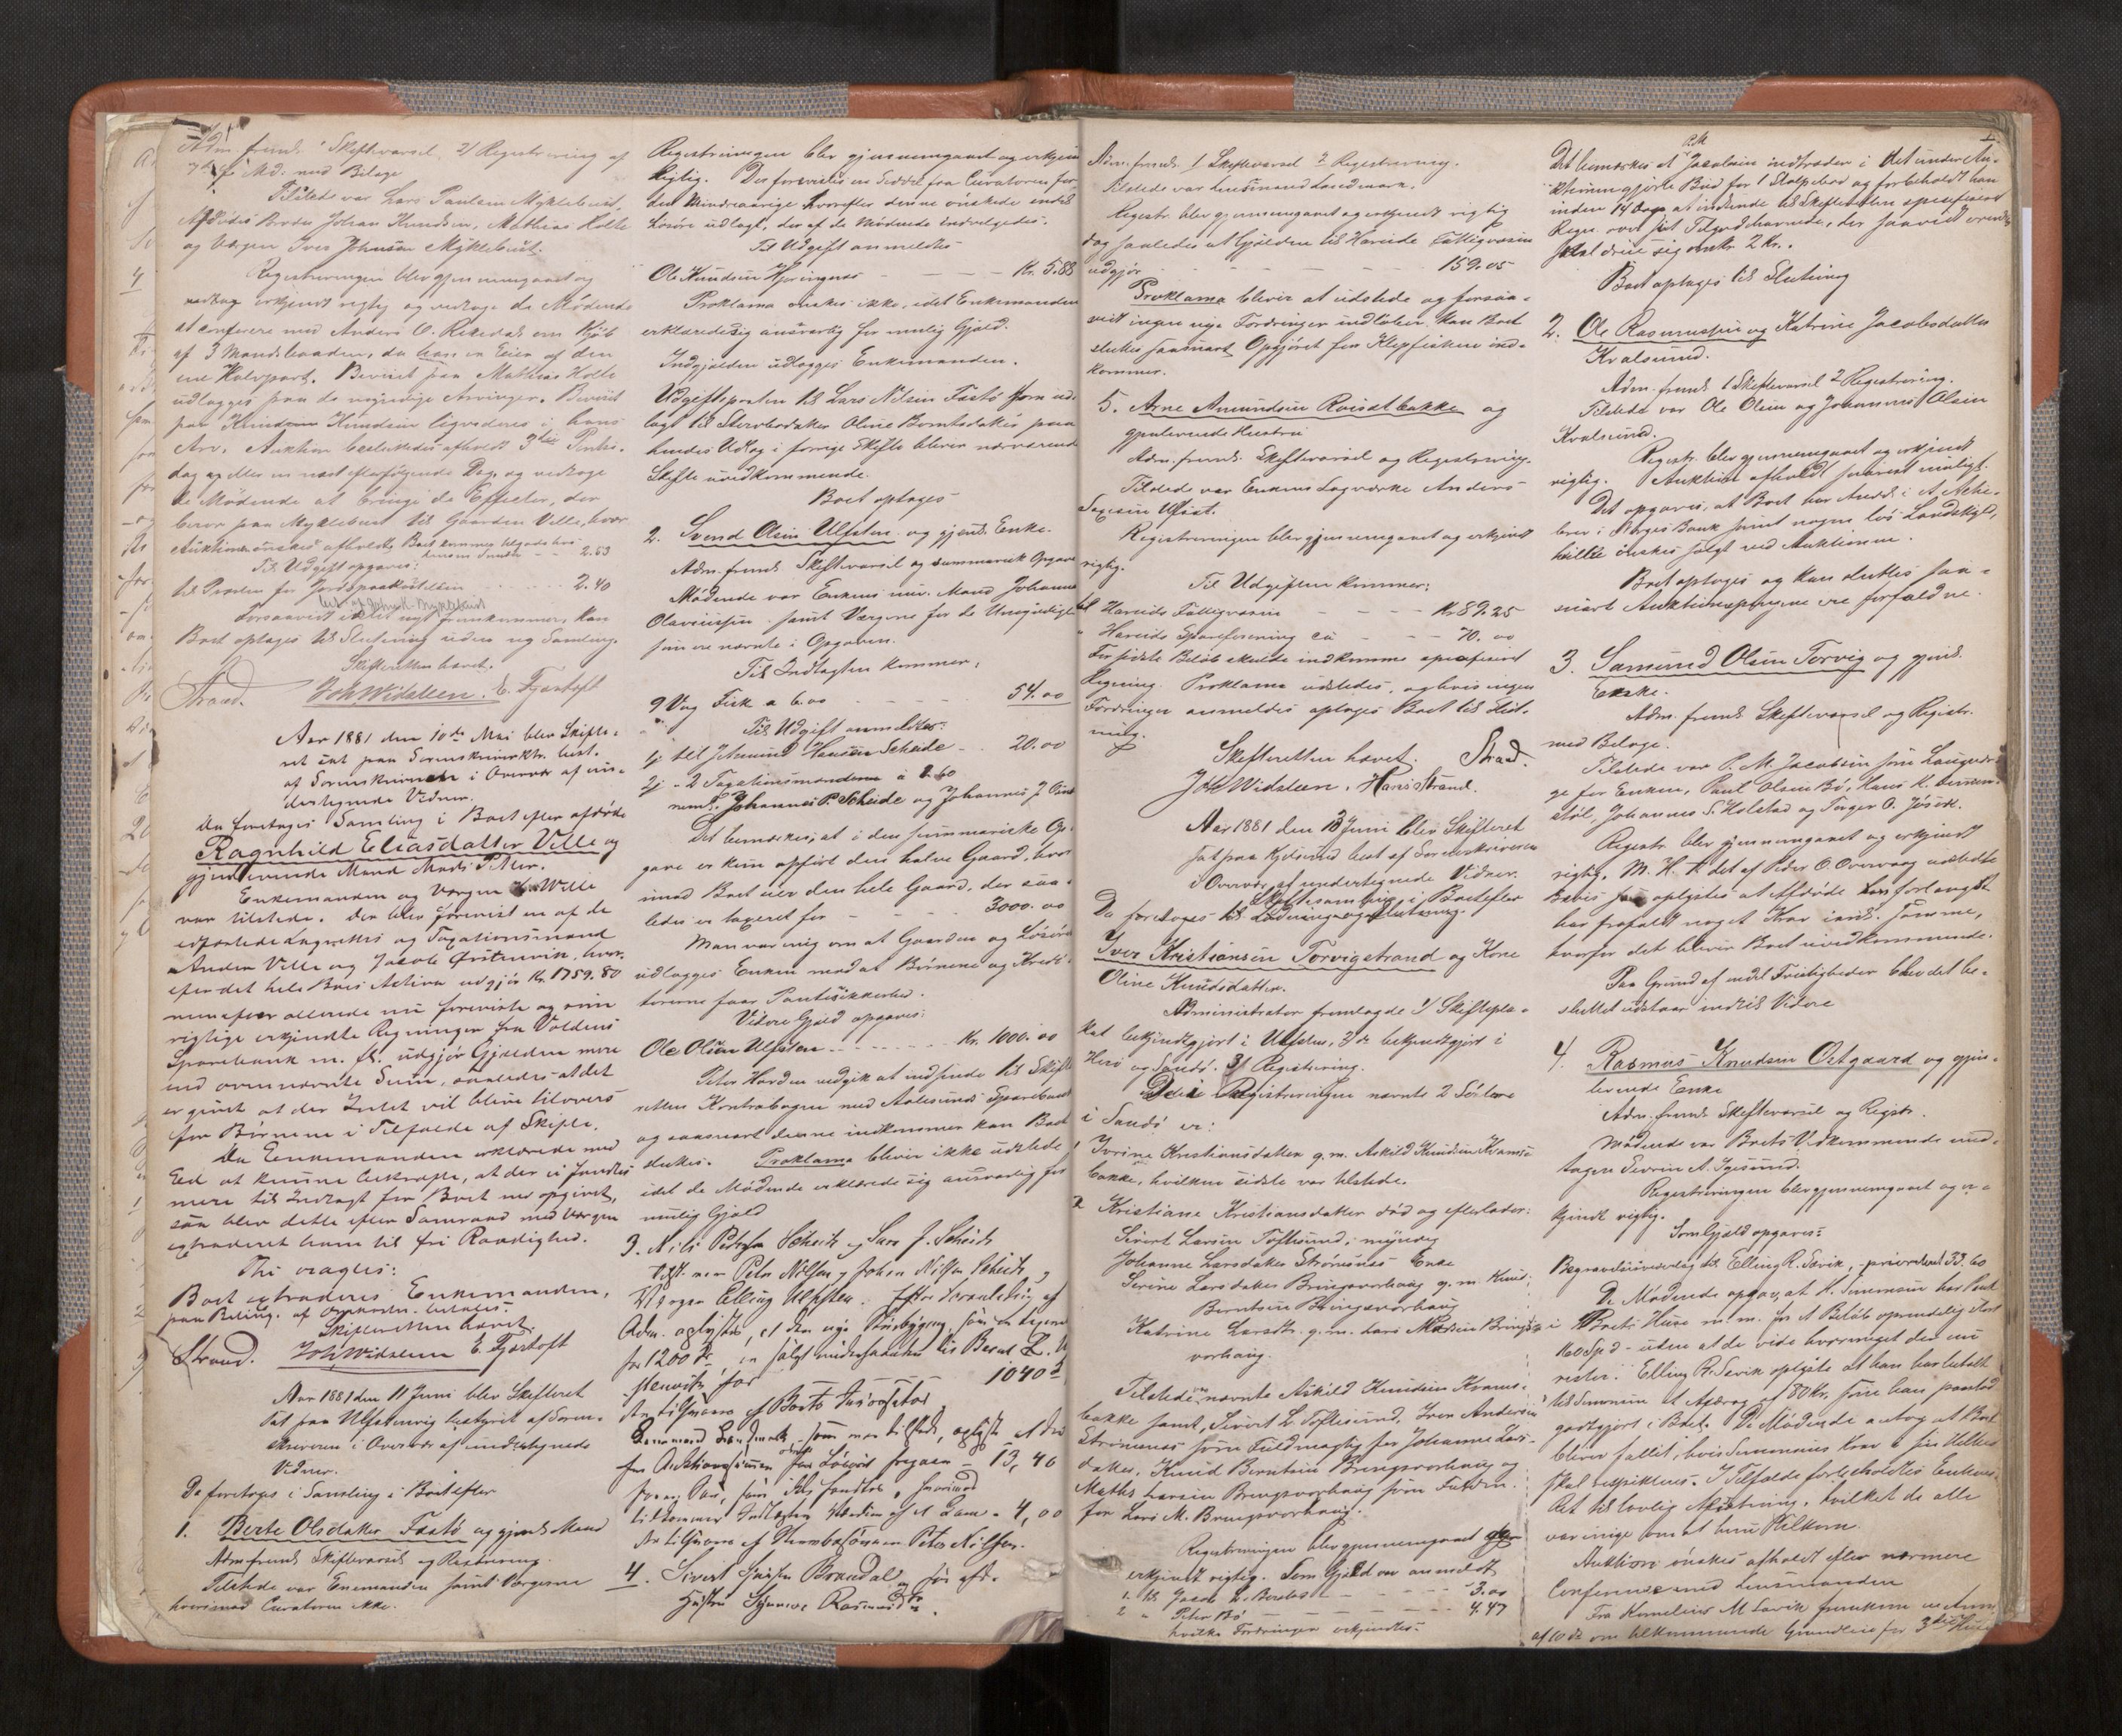 Adm. fremk. 1 Skiftevarsel, 2/ Registrering af
7de f. Md. med Bilage
Tilstede var Lars Paulsen Myklebust,
Afdødes Broder Johan Knudsen, Mathias Holte
og Værgen Iver Johnsen Myklebust.
Registreringen blev gjennemgaaet og
erkjendt rigtig og vedtoge de Mødende
at conferere med Anders O. Riksdal om Kjøb
af 3 Mandsbaaden, da han er Eier af den
ene Halvpart. Beviset paa Mathias Holte
udlægges paa de myndige Arvinger. Beviset
paa Knud Knudsen ligvideres i hans
Arv. Auktion besluttedes afholdt 3die Pintse-
dag og eller en næst efterfølgende Dag, og vedtoge
de Mødende at bringe de Effecter, der
beror paa Myklebust til Gaarden Velle, hvor
Auktionen ønskes afholdt.
2.53
Til Udgift opgaves:
til Præsten for Jordspaakastelsen 2.40
Forsaavidt intet nyt fremkommer, kan
Boet optages til Slutning uden ny Samling.
Skifteretten hævet.
Strand. Joh Widsteen. E. Fjørtoft
Aar 1881 den 10de Mai blev Skifte-
ret sat paa Sorenskriverktr. best.
af Sorenskriveren i Overvær af un-
dertegnede Vidner.
Da foretoges Samling i Boet efter afdøde
Ragnhild Eliasdatter Velle og
gjenlevende Mand Mads P. Aker.
Enkemanden og Værgen Velle
var tilstede. Der blev forevist en af de
edfæstede Lagrettes og Taxationsmænd
Anders Velle og Jacob Ørstenvik, hvor-
efter det hele Boes Activa udgjør Kr. 1759.80
men efter allerede nu foreviste og som
rigtige erkjendte Regninger fra Voldens
Sparebank m. fl. udgjør Gjælden mere
end ovennævnte Sum, saaledes at det
er givet at der Intet vil blive tilovers
for Børnene i Tilfælde af Skifte.
Da Enkemanden erklærede med
Ed at kunne bekræfte, at der ei fandtes
mere til Indtægt for Boet end opgivet,
saa blev dette efter Samraad med Værgen
extraderet ham til fri Raadighed.
Thi eragtes:
Boet extraderes Enkemanden,
paa Beting. af Omkostn. betales.
Skifteretten hævet.
Strand. Joh Widsteen E. Fjørtoft
Aar 1881 den 11 Juni blev Skifteret
sat paa Ulfstenvig bestyret af Soren-
skriveren i Overvær af undertegnede
Vidner.
Da foretoges i Samling i Boet efter
1. Berte Olsdatter Fastø og gjenl. Mand
Adm. fremk. Skiftevarsel og Registrering.
Tilstede var Enkemanden samt Værgerne
hvorimod Curatoren ikke.
Registreringen blev gjennemgaaet og erkjendt
rigtig. Der forevistes en Seddel fra Curatoren for
den Mindreaarige hvorefter denne ønskede endel
Løsøre udlagt, der af de Mødende indvilgedes.
Til Udgift anmeldtes
Ole Knudsen Hjøringnes Kr. 5.88
Proklama ønskes ikke, idet Enkemanden
erklærede sig ansvarlig for mulig Gjæld.
Indgjælden udlægges Enkemanden.
Udgiftsposten til Lars Nilsen Fastø som ud-
lagt til Stervboets Datter Oline Berntsdatter paa
hendes Udlæg i forrige Skifte bliver nærværende
Skifte uvedkommende.
Boet optages
2. Svend Olsen Ulfsten og gjenl. Enke.
Adm. fremk. Skiftevarsel og summarisk Opgave
Mødende var Enkens nuv. Mand Johannes
Olavsensen samt Værgerne for de Umyndige
som ere nævnte i Opgaven.
Til Indtægten kommer:
9 Vog Fisk a 6.00 54.00
Til Udgift anmeldtes:
1/ til Johannes Hansen Scheide 20.00
2/ - 2 Taxationsmændene à 1.60
nemlig Johannes P. Scheide og Johannes J. Osnes
Det bemærkes, at i den summariske Op-
gave er kun opført den halve Gaard, hvor-
imod Boet eier den hele Gaard, der saa-
ledes er taxeret for 3000.00
Man var enig om at Gaarden og Løsøre
udlægges Enken mod at Børnene og Kredi-
torerne faar Pantesikkerhed.
Videre Gjæld opgaves:
Ole Olsen Ulfsten Kr. 1000.00
Peter Hardem vedgik at indsende til Skifte-
retten Kontrabogen med Aalesunds Sparebank
og saasnart denne indkommer kan Boet
sluttes. Proklama bliver ikke udstedt
idet de Mødende erklærede sig ansvarlig for
mulig Gjæld
3. Nils Peders. Scheide og Sara J. Scheide
Tilst. var Peter Nilsen og Johan Nilsen Scheide og
Værgen Elling Ulfsten. Efter Foranledning af
Adm. oplystes, at den nye Husbygning, som er taxeret
for 1200 Kr, er solgt underhaanden til Bernt L.
Mennitz for 1040
Lensmand Landmark som var tilstede, oplyste at der
for Auktionssummen over Løsøret fragaar 13,40
tilkommer Indtægten Værdien af et Lam 4,00
4. Sivert Hansen Brandal og før afd.
Hustru Synneve Rasmusd.
Adm. fremk. 1 Skiftevarsel 2 Registrering.
Tilstede var Lensmand Landmark.
Registr. blev gjennemgaaet og erkjendt rigtig
dog saaledes at Gjælden til Hareide Fattigvæsen
udgjør 159.05
Proklama bliver at udstede og forsaa-
vidt ingen nye Fordringer indløber, kan Boet
sluttes saasnart Opgjøret for Klepfisken ind-
kommer.
5. Arne Amundsen Roisetbakke og
gjenlevende Hustru
Adm. fremk. Skiftevarsel og Registrering.
Tilstede var Enkens Lagværge Anders
Saxesen Ulset.
Registreringen blev gjennemgaaet og erkjendt
rigtig.
Til Udgiften kommer:
til Hareids Fattigvæsen Kr. 89.25
" Hareids Spareforening ca 70.00
For sidste Beløb skulde indkomme specificeret
Regning. Proklama udstedes, og hvis ingen
Fordringer anmeldes optages Boet til Slut-
ning.
Skifteretten hævet. Strand.
Joh Widsteen. Hans Strand.
Aar 1881 den 13 Juni blev Skifteret
sat paa Kjelsund best af Sorenskriveren
i Overvær af undertegnede Vidner.
Da foretoges Skiftesamling i Boet efter
Iver Kristiansen Torvigstrand og Kone
Oline Knudsdatter.
Administrator fremlagde 1/ Skiftepla-
kat bekjendtgjort i Ulfsten, 2/ do bekjendtgjort i
Herø og Sandø. 3/ Registrering.
De i Registreringen nævnte 2 Søstre
i Sandø er:
1 Ivrine Kristiansdatter g. m. Askild Knudsen Kvams-
bakke, hvilken sidste var tilstede.
2 Kristiane Kristiansdatter død og efterlader:
Sivert Larsen Toftesund, myndig
Johanne Larsdatter Strømsnes Enke
Serine Larsdatter Bringsvorhaug g. m. Knud
Berntsen Bringsvorhaug
Katrine Larsdtr. g. m. Lars Madsen Brings-
vorhaug.
Tilstede var nævnte Askild Knudsen Kvams-
bakke samt, Sivert L. Toftesund, Iver Andersen
Strømsnes som Fuldmægtig for Johanne Lars-
datter, Knud Berntsen Bringsvorhaug og
Maths Larsen Bringsvorhaug som Fuldm.
for Lars M. Bringsvorhaug.
Registreringen blev gjennemgaaet og
erkjendt rigtig. Som Gjæld var anmeldt
3.00
2 " Peter Bø 4.47
hvilke Fordringer erkjendtes.
Det bemærkes at P.M. Jacobsen indtræder i det under Au-
ktionen gjorte Bud for 1 Stolpebod og forbeholdt han
inden 14 Dage at indsende til Skifteretten specificeret
Regn. over sit Tilgodehavende, der saavidt erindres
skal dreie sig omtr. 2 Kr.
Boet optages til Slutning
2. Ole Rasmussen og Katrine Jacobsdatter
Kvalsund.
Adm. fremk 1 Skiftevarsel 2 Registrering.
Tilstede var Ole Olsen og Johannes Olsen
Kvalsund.
Registr. blev gjennemgaaet og erkjendt
rigtig. Auktion afholdt snarest muligt.
Det opgaves, at Boet har Andel i et Aktie-
brev i Norges Bank samt nogen løs Landskyld,
hvilke ønskes solgt ved Auktionen.
Boet optages og kan sluttes saa-
snart Auktionspengene ere forfaldne.
3. Samund Olsen Torvig og gjenl.
Enke.
Adm. fremk. Skiftevarsel og Registr.
med Bilage.
Tilstede var P. M. Jacobsen som Laugvær-
ge for Enken, Paul Olsen Bø, Hans K.
støl, Johannes S. Holstad og Torger O. Jøsok.
Registr. blev gjennemgaaet og erkjendt
rigtig. M. H. t. det af Peder O. Overvaag udstedte
Bevis oplystes at Afdøde har forlangt
har frafaldt noget Krav
hvorfor det bliver Boet uvedkommende.
Paa Grund af endel Tvistigheder blev det be-
sluttet udstaar indtil Videre
4. Rasmus Knudsen Ostgaard og gjen-
levende Enke
Adm. fremk Skiftevarsel og Registr.
Mødende var Boets Vedkommende und-
tagen Severin A. Igesund.
Registreringen blev gjennemgaaet og er-
kjendt rigtig.
Som Gjæld opgaves:
Begravelsesudlæg til Elling R. Sævik, prioriteret 33.60
De Mødende opgav, at K. Simonsen har Pant
i Boets Huse m. m. for et Beløb oprindelig stort
160 Spd - uden at de vide hvormeget der nu
rester. Elling R. Sævik oplyste at han har betalt
til Simonsen et Afdrag af 80 Kr, som han paastod
godtgjort i Boet. De Mødende antog at Boet
bliver fallit, hvis Simonsens Krav i sin Helhed
skal respekteres. I Tilfælde forbeholdtes Enkens
Ret til lovlig Afsætning, hvilket de alle
var enige om at hun tilkom.
Auktion ønskes afholdt efter nærmere
Conference med Lensmanden
Fra Kornelius M Sævik fremkom en Anm.
af 10 ds om tilkommende Grundleie for 3die Huse